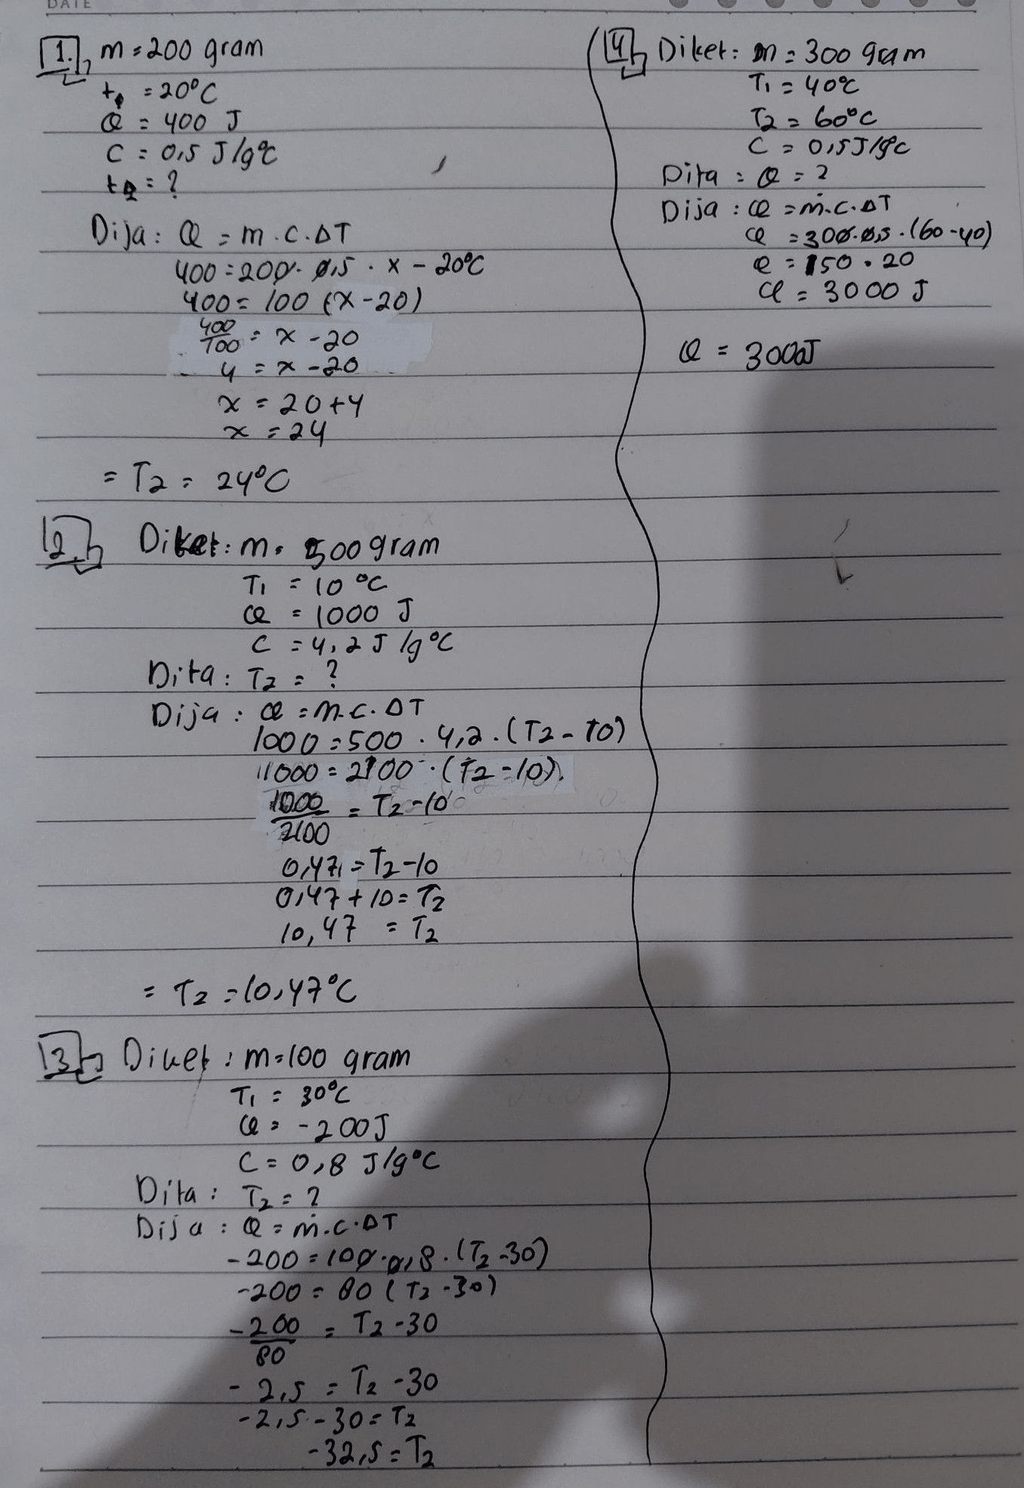 DATE
1. m = 200 gram
t1 = 20°C
Q = 400 J
C = 0,5 J/g°C
t2 = ?
Dija: Q = m.C.ΔT
400 = 200. 0,5 . x - 20°C
400 = 100 (x-20)
400/100 = x - 20
4 = x - 20
x = 20+4
x = 24
= T2 = 24°C
2. Diket: m = 500 gram
T1 = 10 °C
Q = 1000 J
C = 4,2 J /g°C
Dita: T2 = ?
Dija: Q = m.C.ΔT
1000 = 500 . 4,2 . (T2 - 10)
1000 = 2100 . (T2 - 10).
1000/2100 = T2 - 10
0,47 = T2 - 10
0,47 + 10 = T2
10,47 = T2
= T2 = 10,47°C
3. Diket: m = 100 gram
T1 = 30°C
Q = -200 J
C = 0,8 J/g°C
Dita: T2 = ?
Dija: Q = m.C.ΔT
-200 = 100.0,8.(T2-30)
-200 = 80 (T2-30)
-200/80 = T2 - 30
-2,5 = T2 - 30
-2,5 - 30 = T2
-32,5 = T2
4. Diket: m = 300 gram
T1 = 40°C
T2 = 60°C
C = 0,5 J/g°C
Dita: Q = ?
Dija: Q = m.C.ΔT
Q = 300.0,5.(60-40)
Q = 150 . 20
Q = 3000 J
Q = 3000J